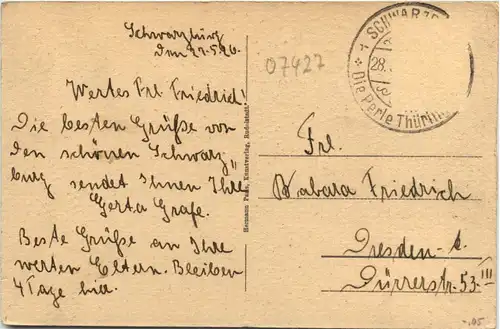 Schwarzburg
den 27.5.26.
Wertes Frl. Friedrich!
Die besten Grüße von
den schönen Schwarz„
burg sendet Ihnen Ihre
Gerta Grafe.
Beste Grüße an Ihre
werten Eltern. Bleiben
4 Tage hier.
07427
SCHWARZB
28.
Die Perle Thürin
Hermann Kunstverlag, Rudolstadt.
Frl.
Barbara Friedrich
Dresden-A.
Dürrerstr. 53. III
-.05